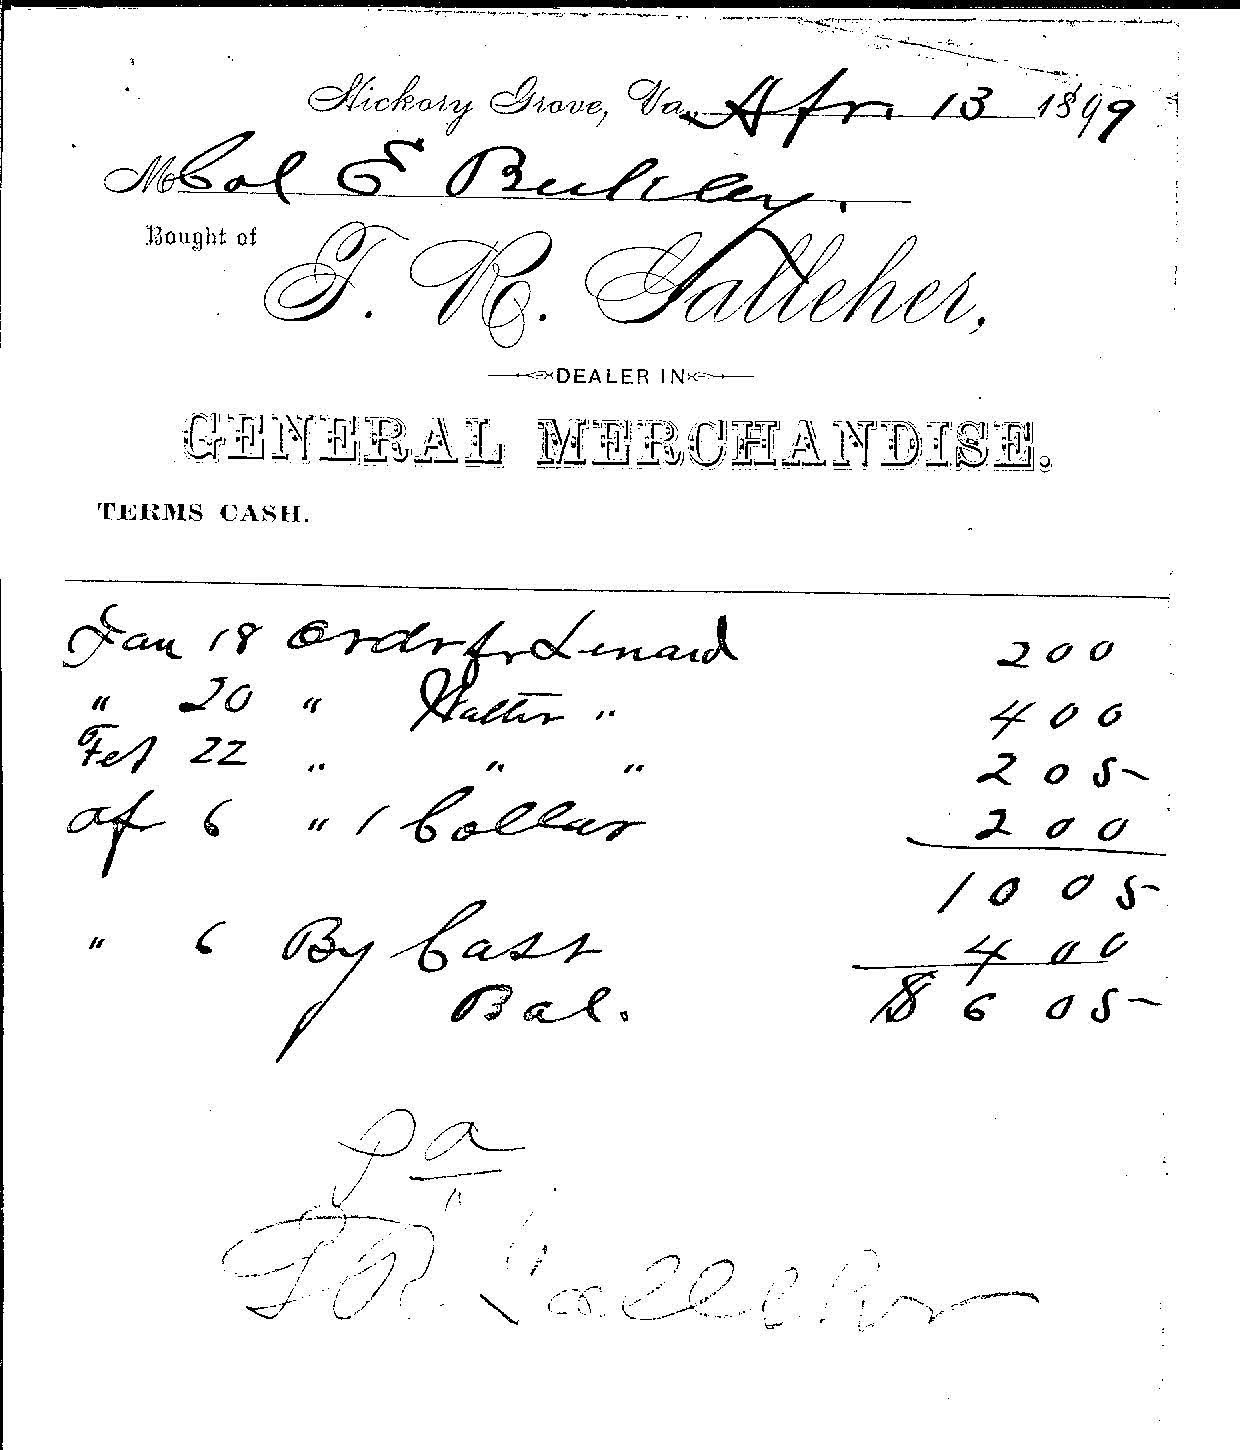 Hickory Grove, Va., Apr. 13 1899
M Col E Berkley.
Bought of
T. R. Galleher,
DEALER IN
GENERAL MERCHANDISE.
TERMS CASH.
Jan 18 Ordr fr Lenard 2 00
" 20 " Walter " 4 00
Feb 22 " " " 2 05
Ap 6 " 1 Collar 2 00
10 05
" 6 By Cash 4 00
Bal. $ 6 05
Pd
T R. Galleher